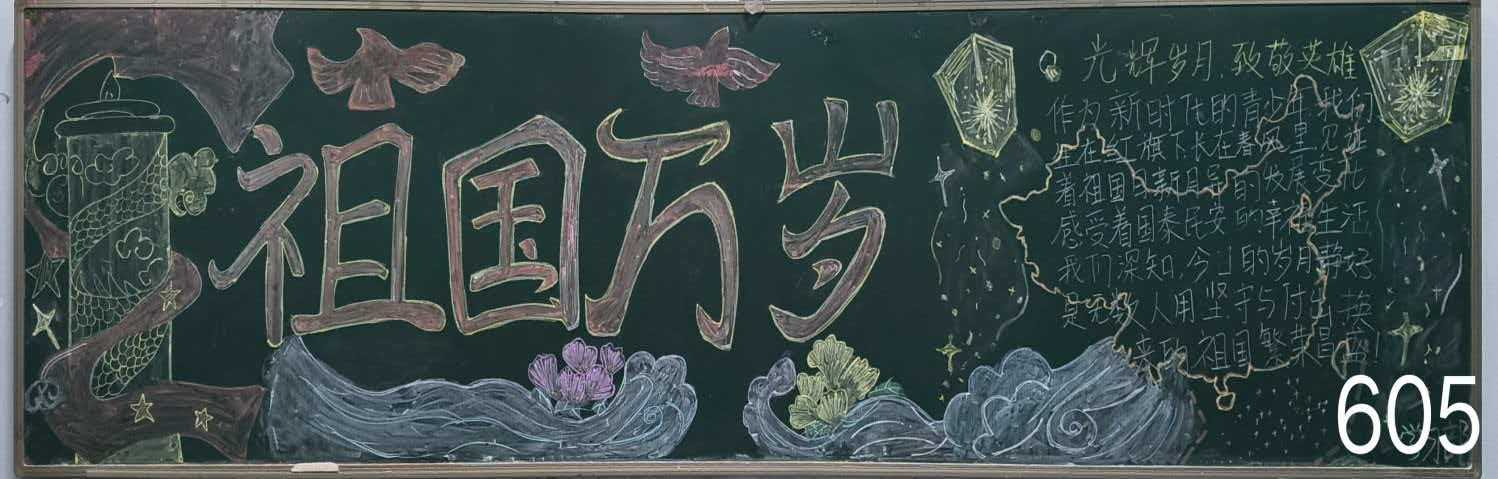 祖国万岁
光辉岁月,致敬英雄
作为新时代的青少年,我们
生在红旗下,长在春风里,见证
着祖国日新月异的发展变化
感受着国泰民安的幸福生活
我们深知,今日的岁月静好
是无数人用坚守与付出换
来的,祖国繁荣昌盛!
605